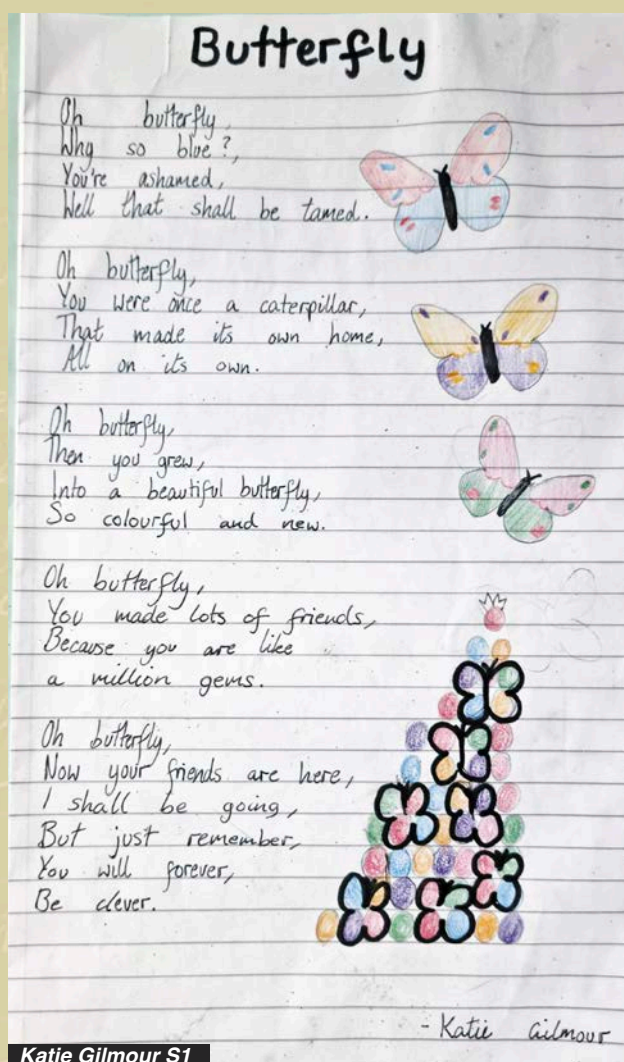 Butterfly
Oh butterfly,
Why so blue?,
You're ashamed,
Well that shall be tamed.
Oh butterfly,
You were once a caterpillar,
That made its own home,
All on its own.
Oh butterfly,
Then you grew,
Into a beautiful butterfly,
So colourful and new.
Oh butterfly,
You made lots of friends,
Because you are like
a million gems.
Oh butterfly,
Now your friends are here,
I shall be going,
But just remember,
You will forever,
Be clever.
- Katie Gilmour
Katie Gilmour S1